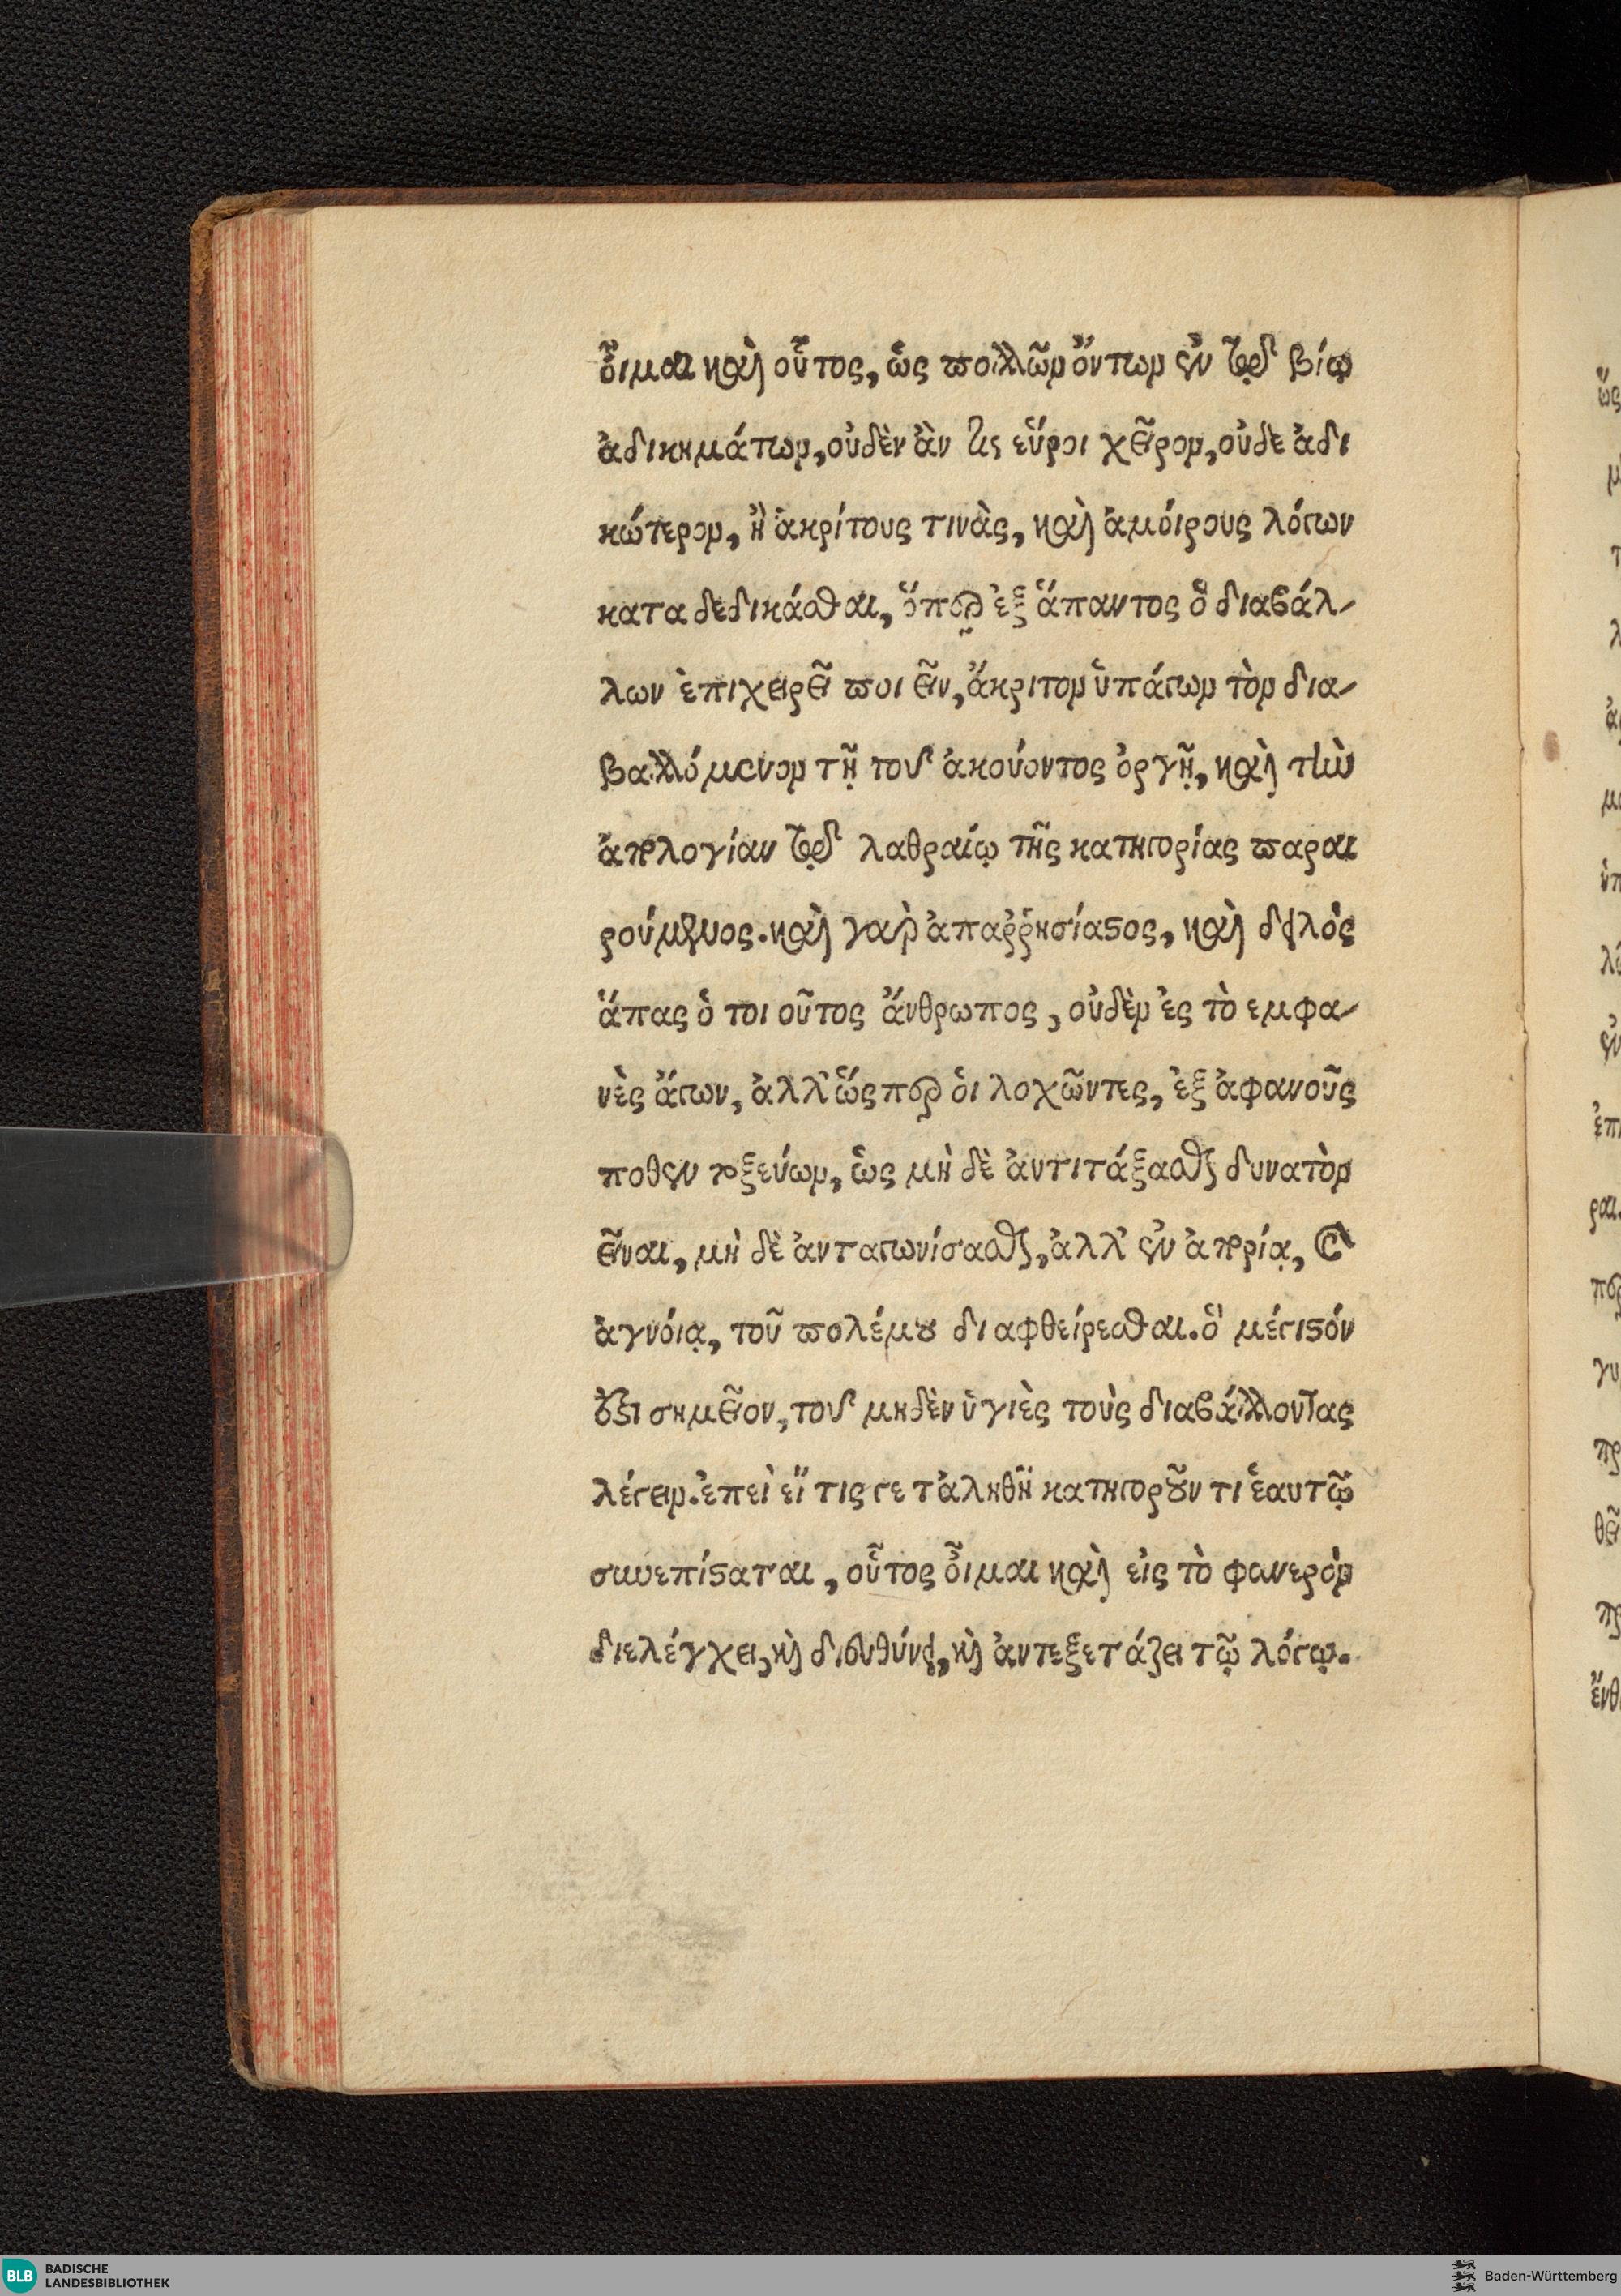 ὅιμαι καὶ οὗτος, ὡς πολλῶν ὄντων ἐν τῷ βίῳ
ἀδικημάτων, οὐδὲν ἂν τις εὕροι χεῖρον, οὐδε ἀδι
κώτερον, ἢ ἀκρίτους τινὰς, καὶ ἀμόιρους λόγων
καταδεδικάσθαι, ὅπερ ἐξ ἅπαντος ὁ διαβάλ-
λων ἐπιχειρεῖ ποιεῖν, ἄκριτον ὑπάγων τὸν δια-
βαλλόμενον τῇ τοῦ ἀκούοντος ὀργῇ, καὶ τὴν
ἀπολογίαν τῷ λαθραίῳ τῆς κατηγορίας παραι
ρούμενος. καὶ γὰρ ἀπαῤῥησίαστος, καὶ δειλὸς
ἅπας ὁ τοιοῦτος ἄνθρωπος, οὐδὲν ἐς τὸ εμφα-
νὲς ἄγων, ἀλλ' ὥσπερ ὁι λοχῶντες, ἐξ ἀφανοῦς
ποθεν τοξεύων, ὡς μὴ δὲ ἀντιτάξασθαι δυνατὸν
εἶναι, μὴ δὲ ἀνταγωνίσασθαι, ἀλλ' ἐν ἀπορίᾳ, καὶ
ἀγνόιᾳ, τοῦ πολέμου διαφθείρεσθαι. ὃ μέγιστόν
ἐστι σημεῖον, τοῦ μηδὲν ὑγιὲς τοὺς διαβάλλοντας
λέγειν. ἐπεὶ εἴ τις γε τἀληθῆ κατηγοροῦντι ἑαυτῷ
συνεπίσταται, οὗτος ὅιμαι καὶ εἰς τὸ φανερὸν
διελέγχει, καὶ διευθύνει, καὶ ἀντεξετάζει τῷ λόγῳ.
ὥς
BLB BADISCHE
LANDESBIBLIOTHEK
Baden-Württemberg